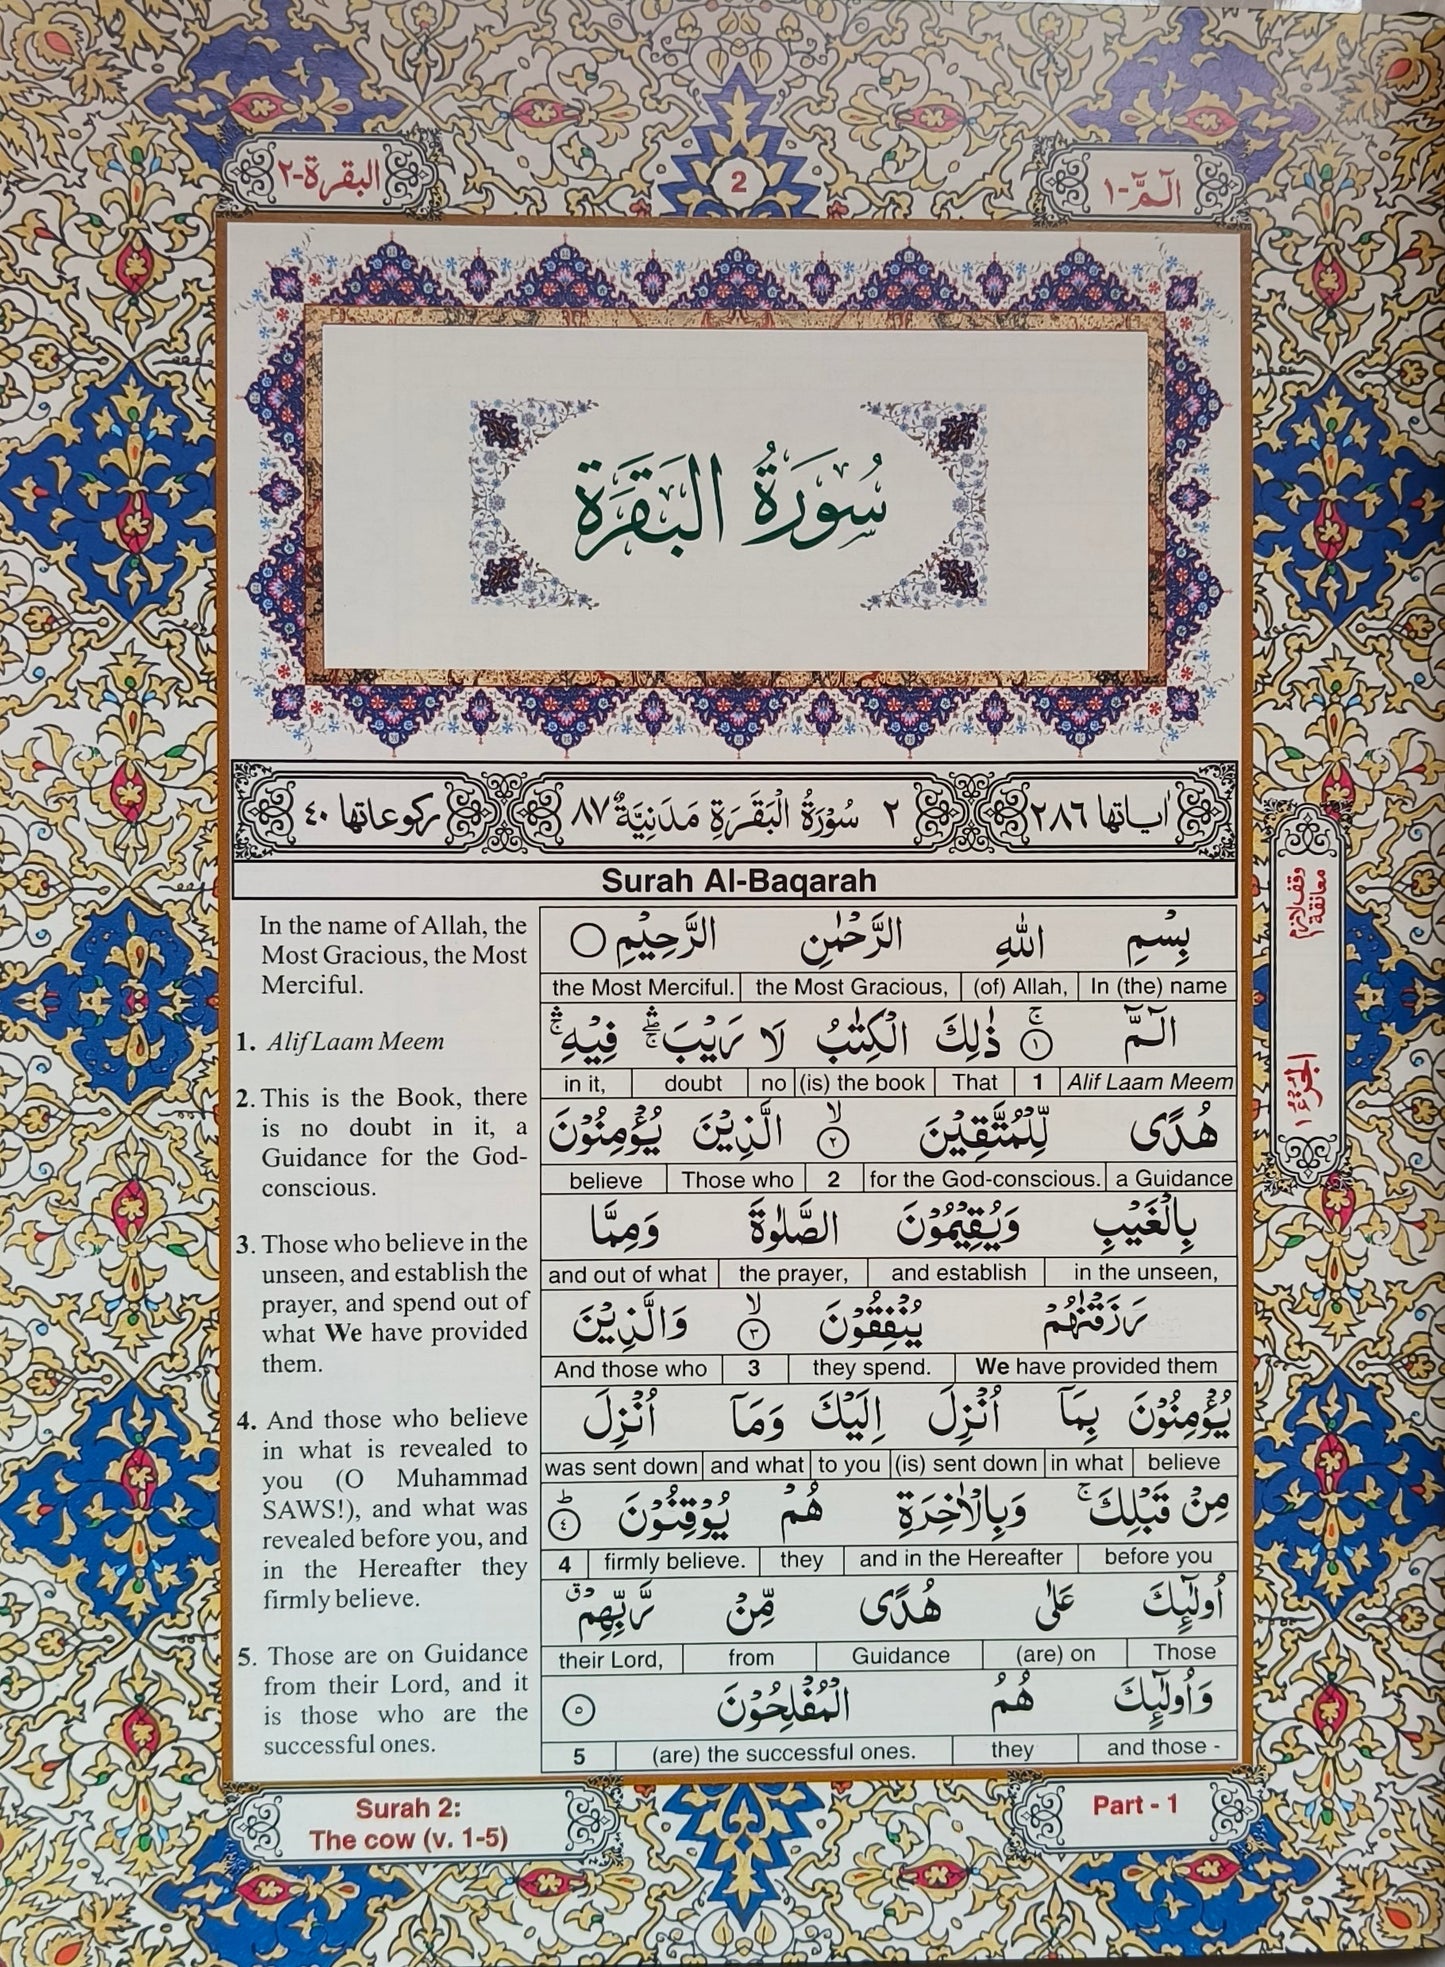 البقرة-٢
2
الٓمّٓ-١
سُورَةُ البَقَرَة
اٰيٰاتها ٢٨٦
٢ سُوْرَةُ الْبَقَرَةِ مَدَنِيَّةٌ ٨٧
ركوعاتها ٤٠
Surah Al-Baqarah
In the name of Allah, the
Most Gracious, the Most
Merciful.
1. Alif Laam Meem
2. This is the Book, there
is no doubt in it, a
Guidance for the God-
conscious.
3. Those who believe in the
unseen, and establish the
prayer, and spend out of
what We have provided
them.
4. And those who believe
in what is revealed to
you (O Muhammad
SAWS!), and what was
revealed before you, and
in the Hereafter they
firmly believe.
5. Those are on Guidance
from their Lord, and it
is those who are the
successful ones.
بِسْمِ اللّٰهِ الرَّحْمٰنِ الرَّحِيْمِ ○
the Most Merciful. the Most Gracious, (of) Allah, In (the) name
الٓمّٓ ۚ ١ ذٰلِكَ الْكِتٰبُ لَا رَيْبَ ۛۚۖ فِيْهِ ۛۚ
in it, doubt no (is) the book That 1 Alif Laam Meem
هُدًى لِّلْمُتَّقِيْنَ ۙ ٢ الَّذِيْنَ يُؤْمِنُوْنَ
believe Those who 2 for the God-conscious. a Guidance
بِالْغَيْبِ وَيُقِيْمُوْنَ الصَّلٰوةَ وَمِمَّا
and out of what the prayer, and establish in the unseen,
رَزَقْنٰهُمْ يُنْفِقُوْنَ ۙ ٣ وَالَّذِيْنَ
And those who 3 they spend. We have provided them
يُؤْمِنُوْنَ بِمَآ اُنْزِلَ اِلَيْكَ وَمَآ اُنْزِلَ
was sent down and what to you (is) sent down in what believe
مِنْ قَبْلِكَ ۚ وَبِالْاٰخِرَةِ هُمْ يُوْقِنُوْنَ ؕ ٤
4 firmly believe. they and in the Hereafter before you
اُولٰٓئِكَ عَلٰى هُدًى مِّنْ رَّبِّهِمْ ۗ
their Lord, from Guidance (are) on Those
وَاُولٰٓئِكَ هُمُ الْمُفْلِحُوْنَ ٥
5 (are) the successful ones. they and those -
وقف لازم
معانقة ١
الجزء ١
Surah 2:
The cow (v. 1-5)
Part - 1